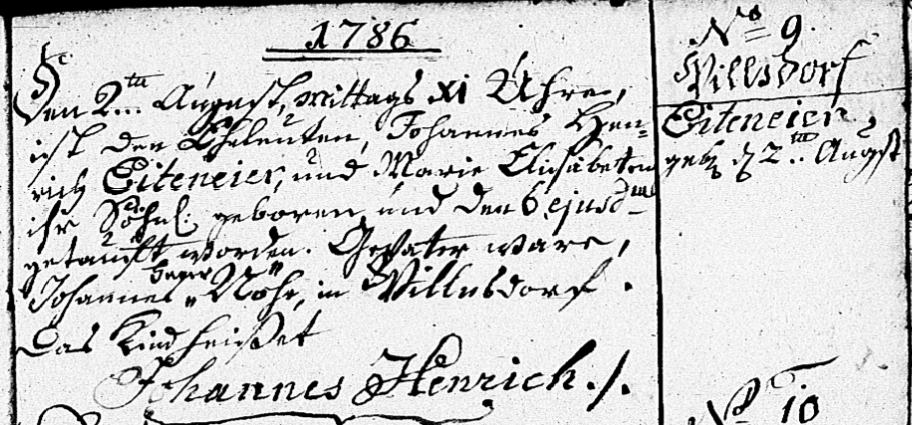 1786
Den 2ten August, mittags XI Uhre,
ist den Eheleuten, Johannes Hen-
rich Eiteneier, und Marie Elisabeten
ihr 2. Söhnl: geboren und den 6 ejusd
getauft worden. Gevater ware,
Johannes Nöh, in Willnsdorf.
Das Kind heißet
Johannes Henrich ./.
No 9
Willsdorf
Eiteneier,
geb d 2ten Augst
No 10